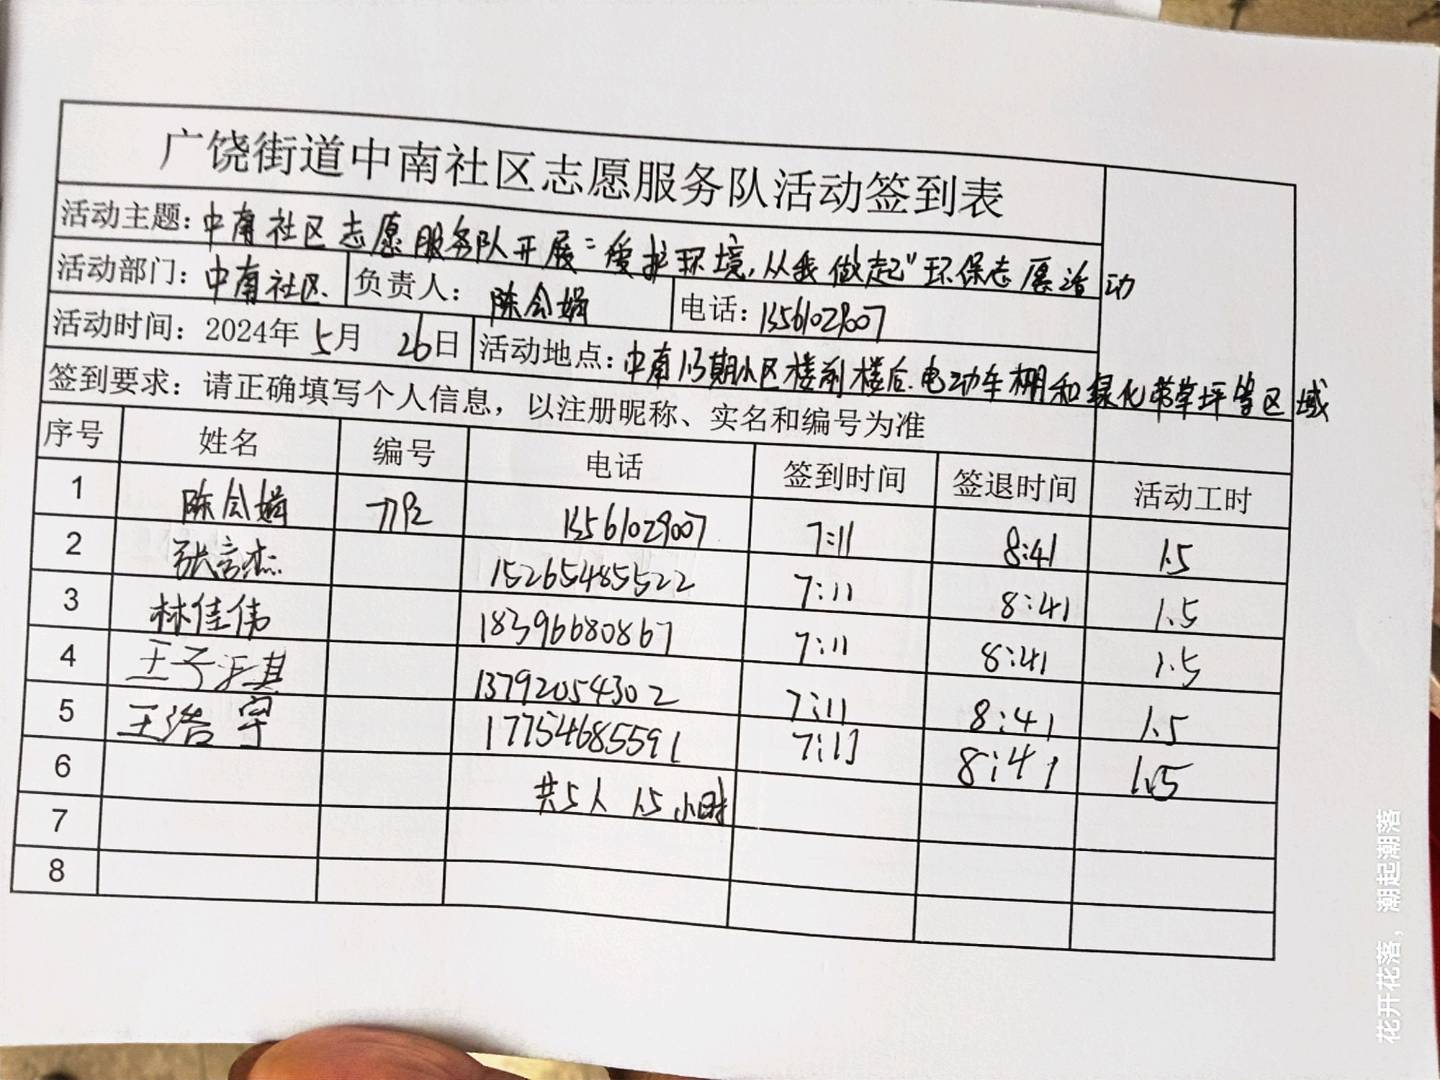 广饶街道中南社区志愿服务队活动签到表
活动主题：中南社区志愿服务队开展“爱护环境，从我做起”环保志愿活动
活动部门：中南社区 负责人： 陈会娟 电话：13561029007
活动时间：2024年5月 26日 活动地点：中南15期小区楼前楼后、电动车棚和绿化带草坪等区域
签到要求：请正确填写个人信息，以注册昵称、实名和编号为准
序号 姓名 编号 电话 签到时间 签退时间 活动工时
1 陈会娟 13561029007 7:11 8:41 1.5
2 张言杰 15265485522 7:11 8:41 1.5
3 林佳伟 18396680867 7:11 8:41 1.5
4 王子 琪 13792054302 7:11 8:41 1.5
5 王浩宇 17754685591 7:11 8:41 1.5
6 共5人 1.5小时
7
8
花开花落，潮起潮落